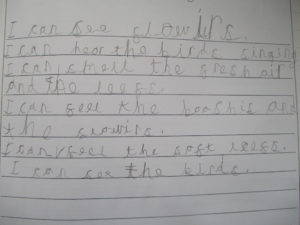 I can see flowirs.
I can hear the birds singing
I can smell the fresh air
and the leefs.
I can feel the booshis and
the flowirs.
I can feel the soft leefs.
I can see the birds.